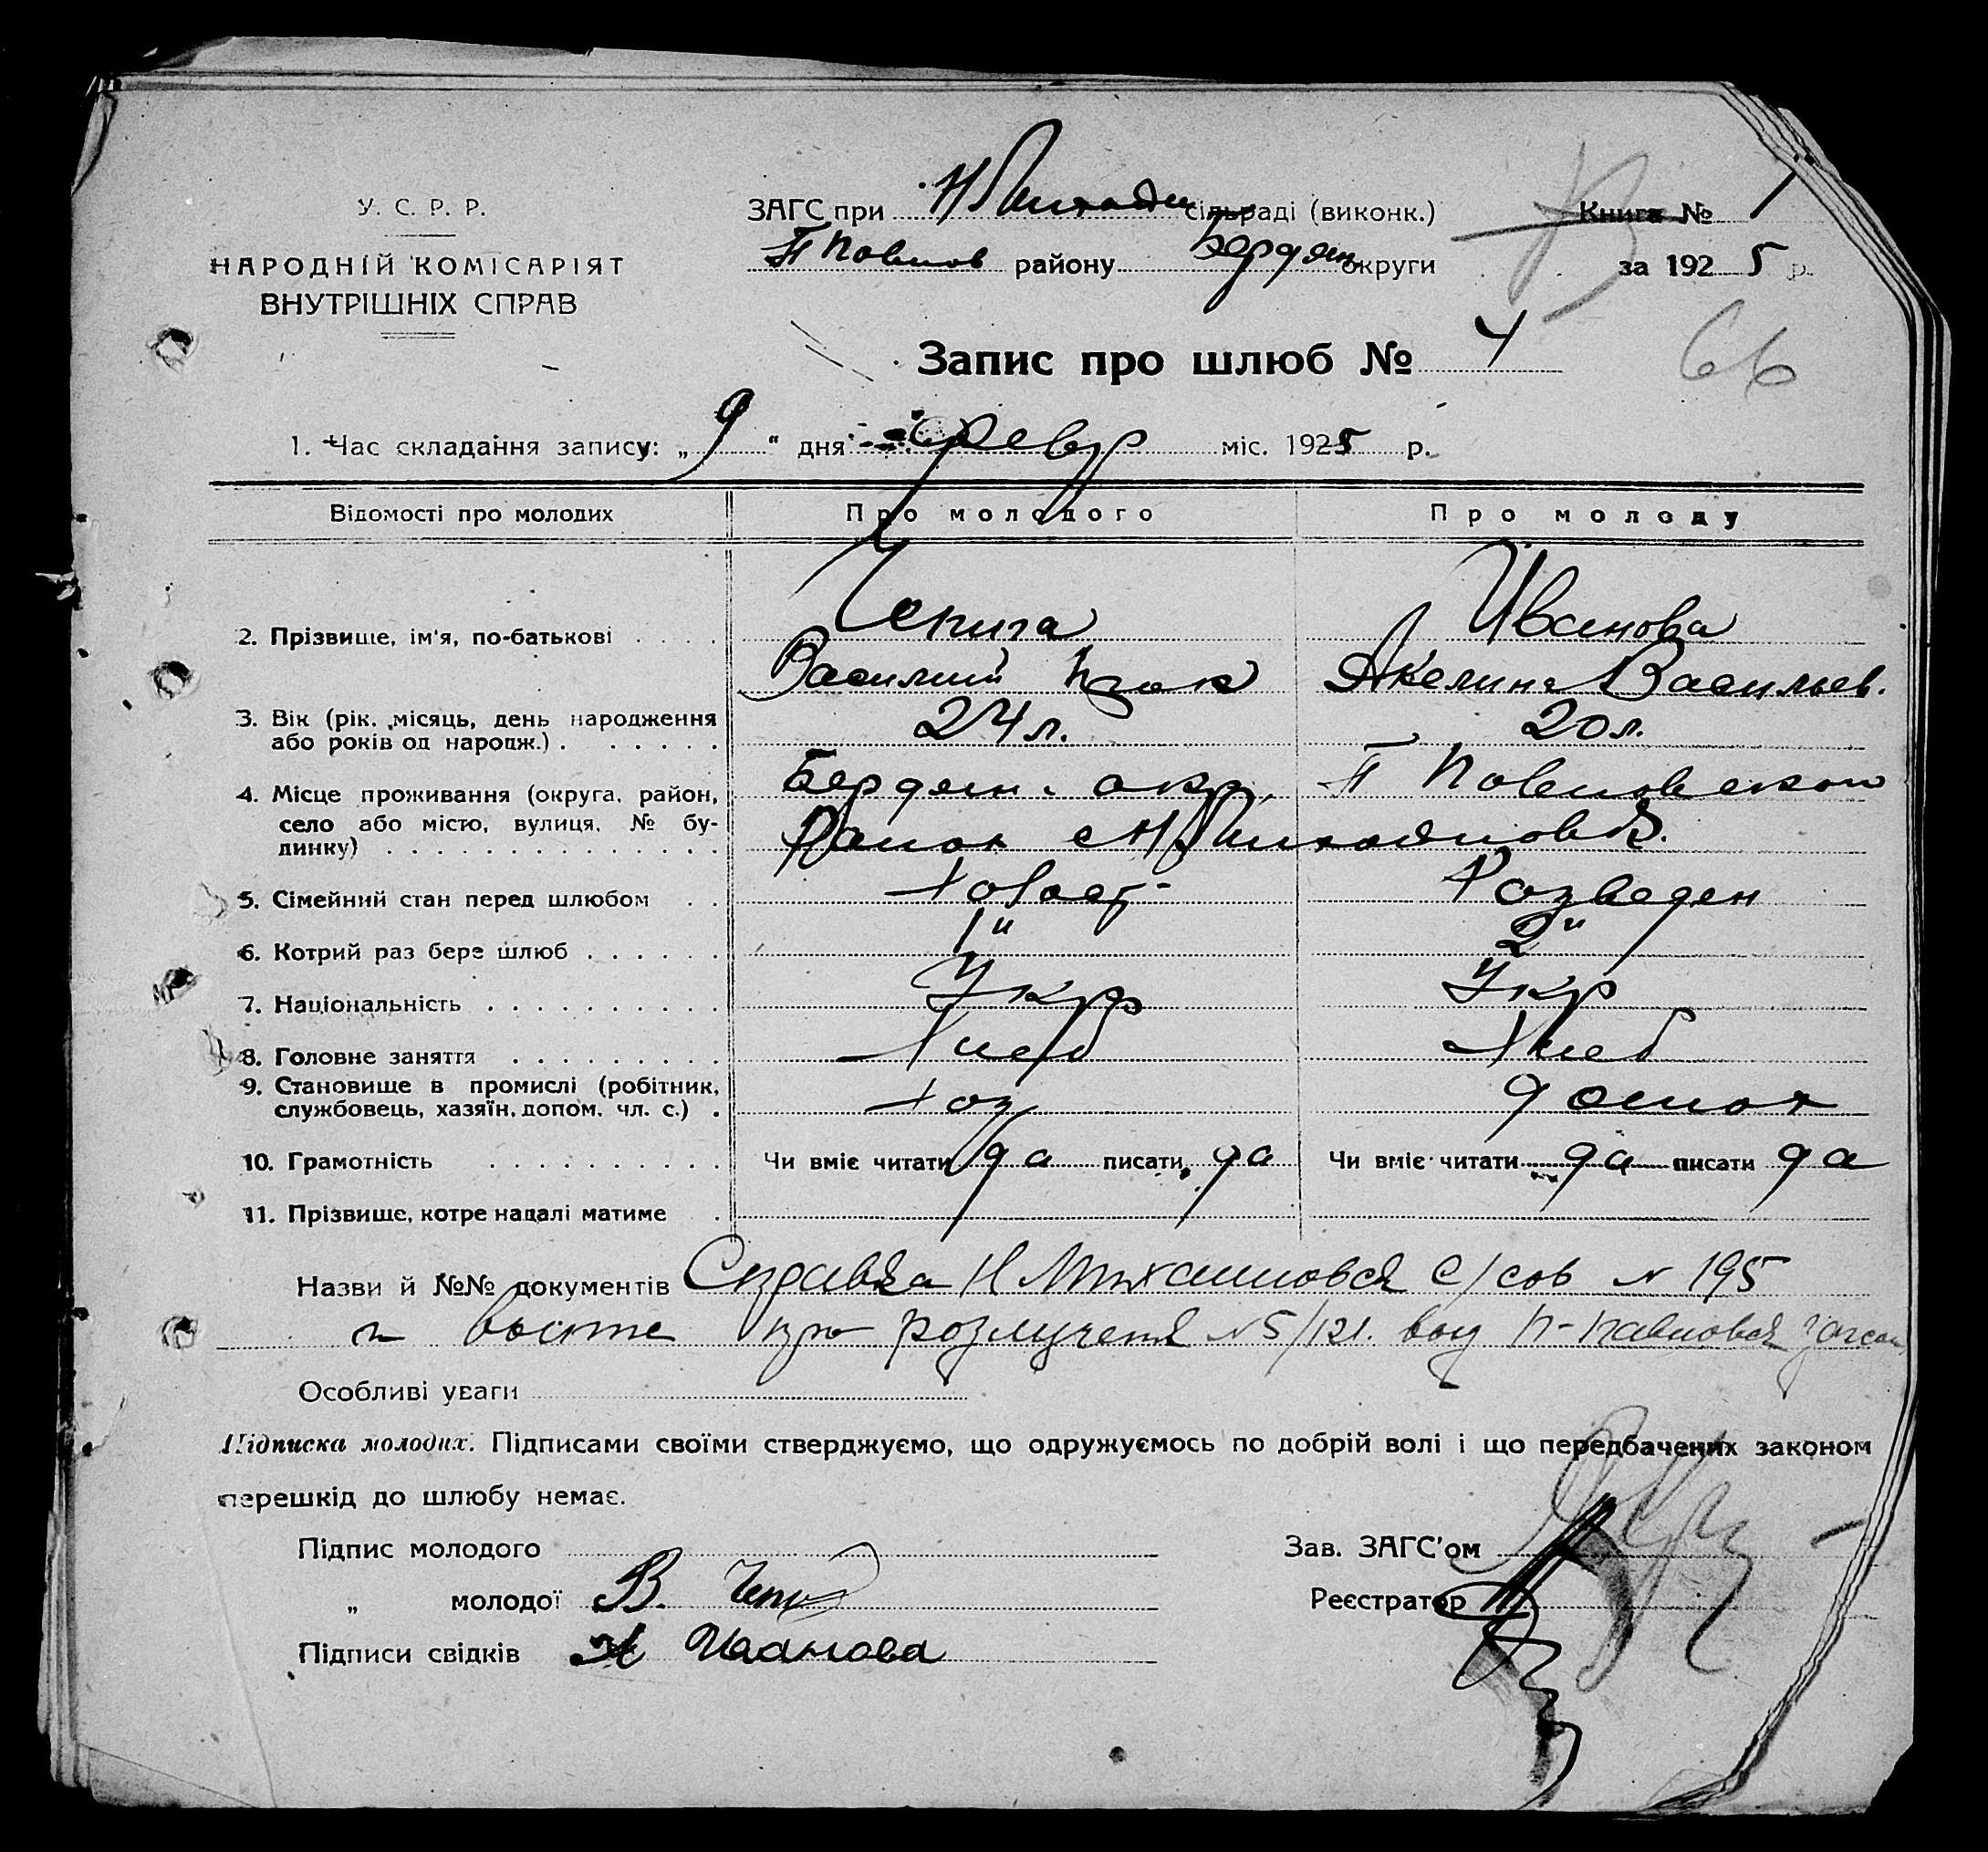 У. С. Р. Р.
НАРОДНІЙ КОМІСАРІЯТ
ВНУТРІШНІХ СПРАВ
ЗАГС при сільраді (виконк.)
П Павлов району Бердян округи
Книга № 1
за 1925 р.
66
Запис про шлюб № 4
1. Час складання запису: „9“ дня февр міс. 1925 р.
Відомості про молодих Про молодого Про молоду
2. Прізвище, ім'я, по-батькові Чепига Иванова
Василий Акелина Васильев.
3. Вік (рік, місяць, день народження або років од народж.) 24 л. 20 л.
4. Місце проживання (округа, район, село або місто, вулиця, № будинку) Бердян. окр, П Павловскии
Район с Н
5. Сімейний стан перед шлюбом Холост Розведен
6. Котрий раз бере шлюб 1" 2"
7. Національність Укр Укр
8. Головне заняття Хлеб Хлеб
9. Становище в промислі (робітник, службовець, хазяїн, допом. чл. с.) хоз домох
10. Грамотність Чи вміє читати да писати да Чи вміє читати да писати да
11. Прізвище, котре надалі матиме
Назви й №№ документів Справка Н Михайловск с/сов N 195
про розлученя N 5/121. П-Павловск Загсом
Особливі уваги
Підписка молодих. Підписами своїми стверджуємо, що одружуємось по добрій волі і що передбачених законом
перешкід до шлюбу немає.
Підпис молодого
„ молодої В. Чепи
Підписи свідків А Иванова
Зав. ЗАГС'ом
Реєстратор